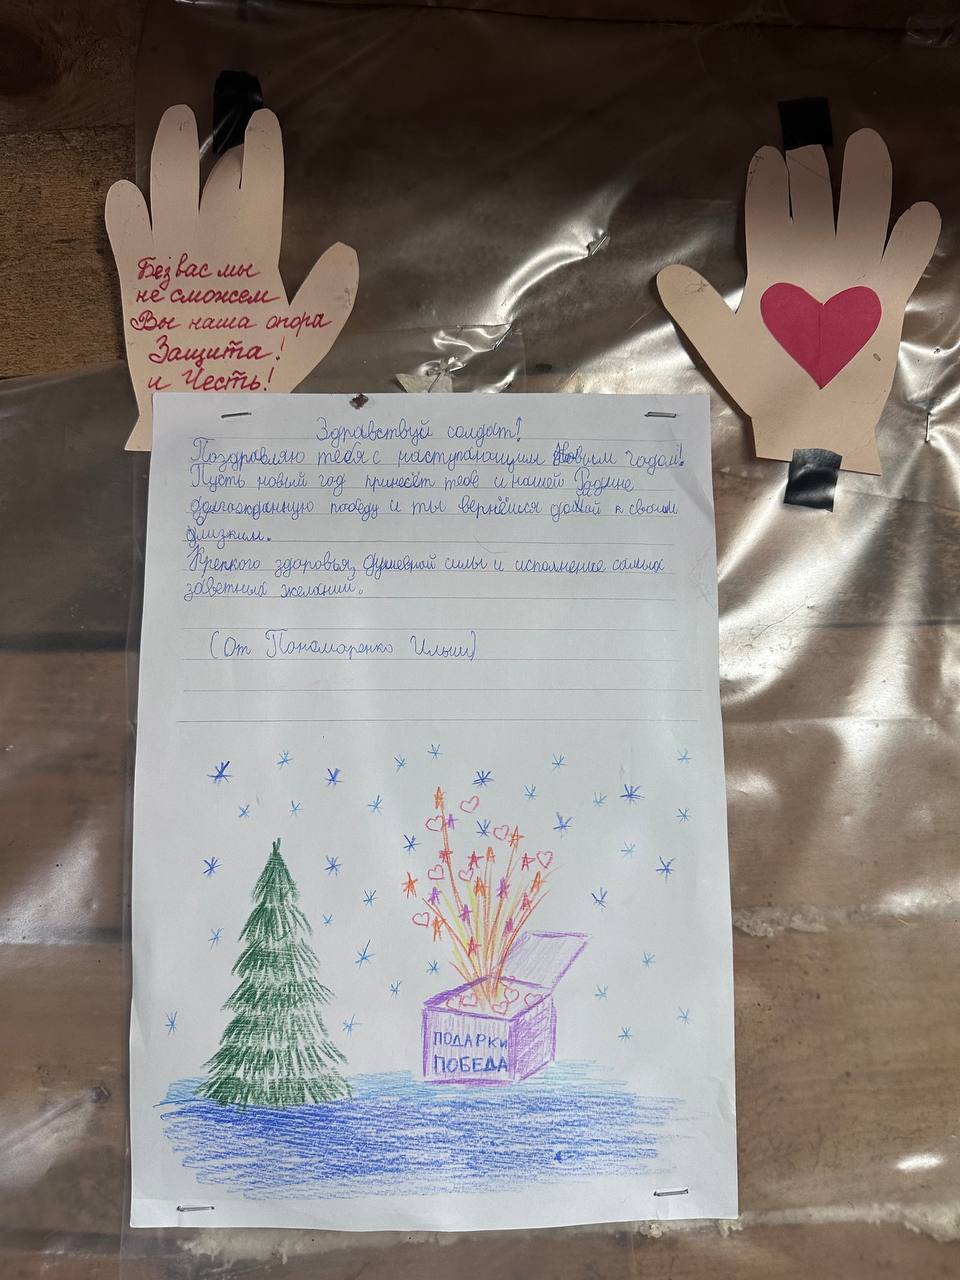 Без вас мы
не сможем
Вы наша опора
Защита!
и Честь!
Здравствуй солдат!
Поздравляю тебя с наступающим Новым годом!
Пусть новый год принесёт тебе и нашей Радине
долгожданную победу и ты вернёшся домой к своим
близким.
Крепкого здоровья, душевной силы и исполнение самых
заветных желаний.
(От Пономаренко Ильи)
ПОДАРКИ
ПОБЕДА